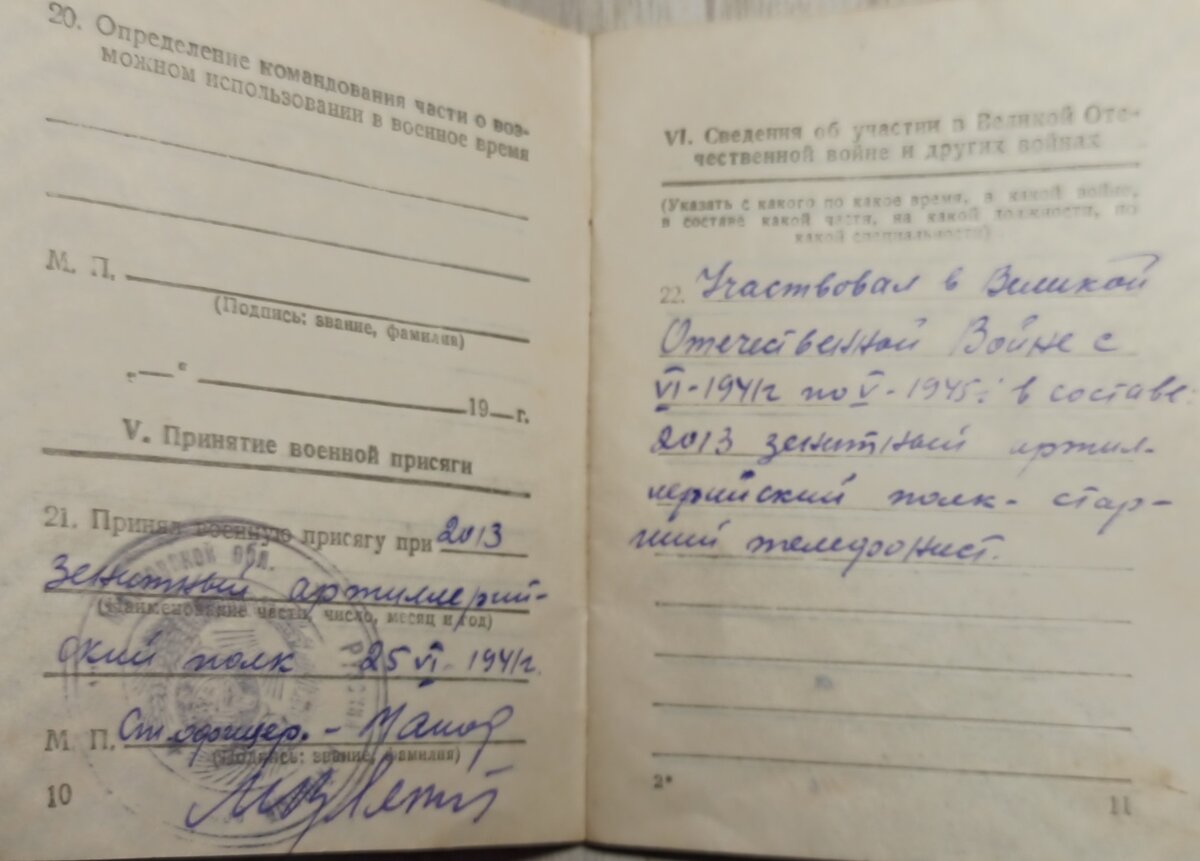 20. Определение командования части о воз-
можном использовании в военное время
М. П.
(Подпись: звание, фамилия)
„—“ 19—г.
V. Принятие военной присяги
21. Принял военную присягу при 2013
зенитный артиллерий-
(Наименование части, число, месяц и год)
ский полк 25 VI-1941г.
М. П. Ст. офицер. -
(Подпись: звание, фамилия)
10
обл.
VI. Сведения об участии в Великой Оте-
чественной войне и других войнах
(Указать с какого по какое время, в какой войне,
в составе какой части, на какой должности, по
какой специальности)
22. Участвовал в Великой
Отечественной Войне с
VI-1941г по V-1945г в составе:
2013 зенитный артил-
лерийский полк - стар-
ший телефонист.
2*
11